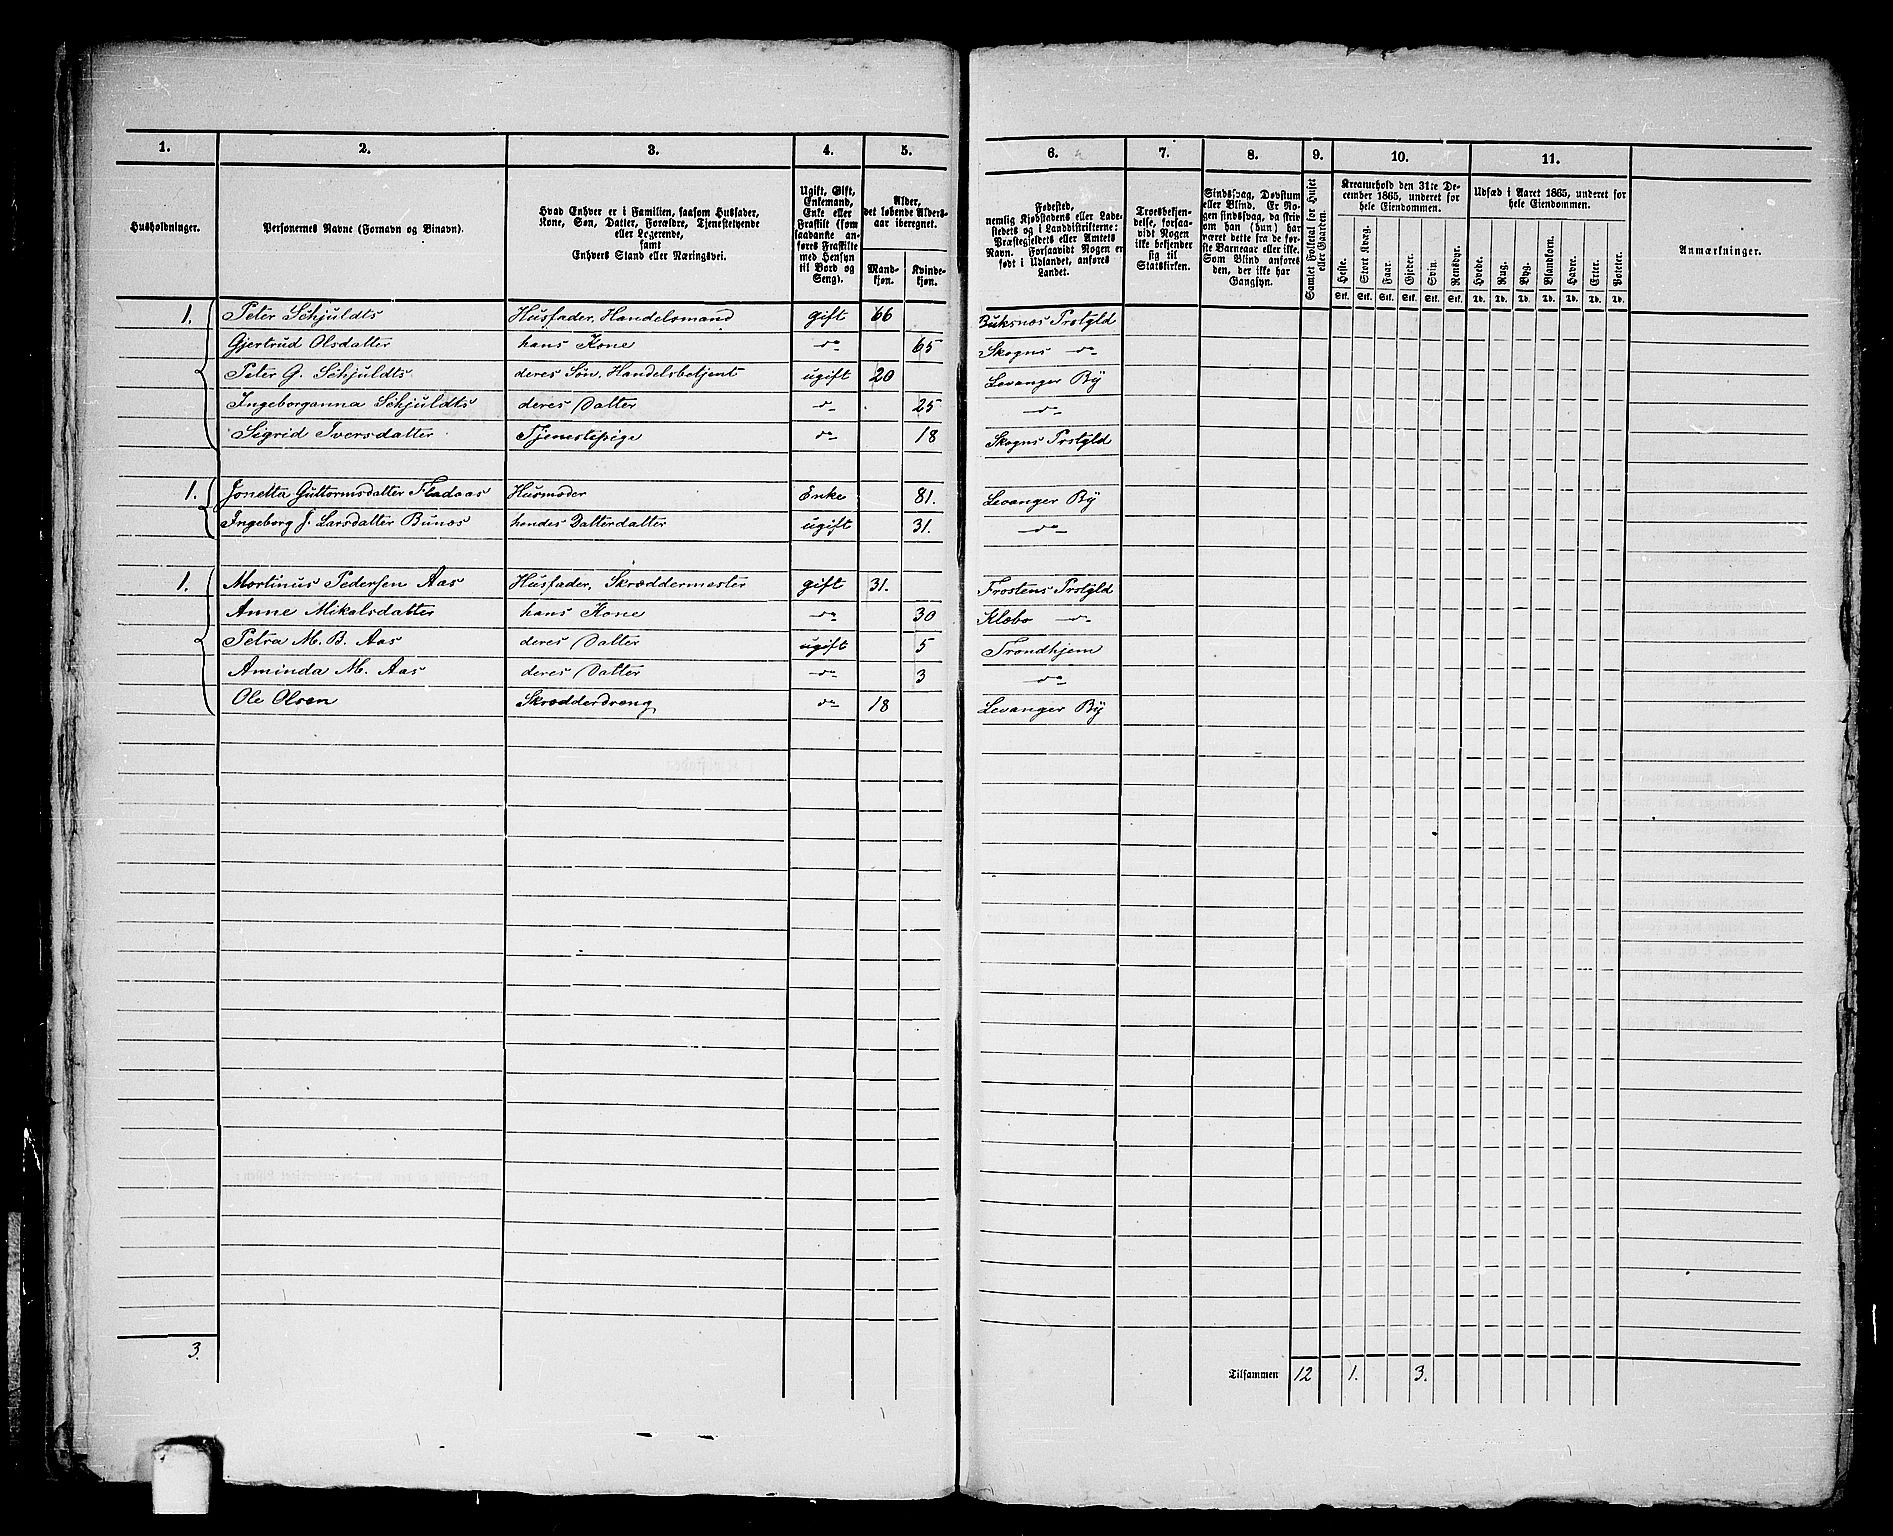 1. 2. 3. 4. 5. 6. 7. 8. 9. 10. 11.
Husholdninger.
Personernes Navne (Fornavn og Binavn).
Hvad Enhver er i Familien, saasom Husfader,
Kone, Søn, Datter, Forældre, Tjenestetyende
eller Logerende,
samt
Enhvers Stand eller Næringsvei.
Ugift, Gift,
Enkemand,
Enke eller
Fraskilt (som
saadanke an-
føres Fraskilte
med Hensyn
til Bord og
Seng).
Alder,
det løbende Alders-
aar iberegnet.
Mand-
kjøn.
Kvinde-
kjøn.
Fødested,
nemlig Kjøbstedens eller Lade-
stedets og i Landdistrikterne:
Præstegjeldets eller Amtets
Navn. Forsaavidt Nogen er
født i Udlandet, anføres
Landet.
Troesbekjen-
delse, forsaa-
vidt Nogen
ikke bekjender
sig til
Statskirken.
Sindssvag, Døvstum
eller Blind. Er No-
gen sindssvag, da skriv
om han (hun) har
været dette fra de før-
ste Barneaar eller ikke.
Som Blind anføres
den, der ikke har
Gangsyn.
Samlet Folketal for Huset
eller Gaarden.
Kreaturhold den 31te De-
cember 1865, underet for
hele Eiendommen.
Heste. Stort Kvæg. Faar. Gjeder. Svin. Rensdyr.
Stk. Stk. Stk. Stk. Stk. Stk.
Udsæd i Aaret 1865, underet for
hele Eiendommen.
Hvede. Rug. Byg. Blandkorn. Havre. Erter. Poteter.
Td. Td. Td. Td. Td. Td. Td.
Anmærkninger.
1. Peter Schjuldts Husfader, Handelsmand gift 66 Buksnes Prstgld
Gjertrud Olsdatter hans Kone do 65 Skogns do
Peter G. Schjuldts deres Søn, Handelsbetjent ugift 20 Levanger By
Ingeborganna Schjuldts deres Datter do 25 do
Sigrid Iversdatter Tjenestepige do 18 Skogns Prstgld
1. Jonetta Guttormsdatter Fladaas Husmoder Enke 81. Levanger By
Ingeborg J. Larsdatter Bunæs hendes Datterdatter ugift 31. do
1. Martinus Pedersen Aas Husfader, Skræddermester gift 31. Frostens Prstgld
Anne Mikalsdatter hans Kone do 30 Klæbo do
Petra M. B. Aas deres Datter ugift 5 Trondhjem
Aminda M. Aas deres Datter do 3 do
Ole Olsen Skrædderdreng do 18 Levanger By
3.
Tilsammen 12 1. 3.